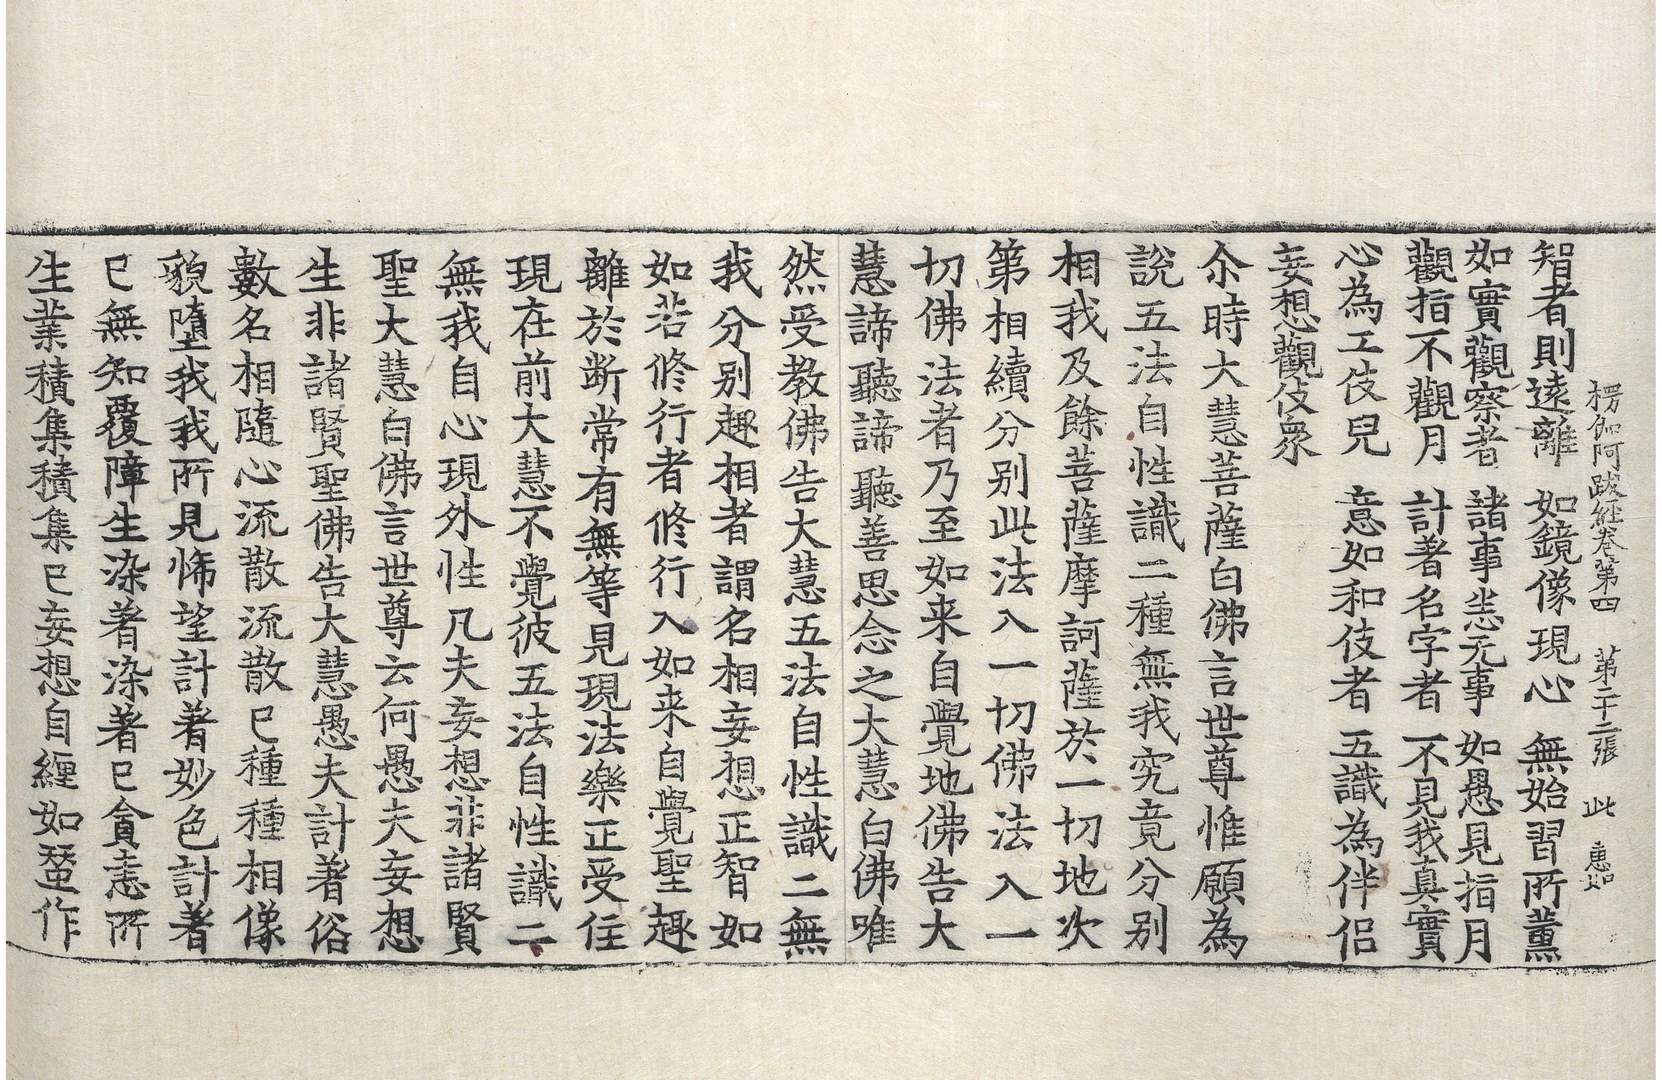 楞伽阿跋経卷第四　第二十二張　此　惠如
智者則遠離　如鏡像現心　無始習所薰
如實觀察者　諸事悉无事　如愚見指月
觀指不觀月　計著名字者　不見我真實
心為工伎兒　意如和伎者　五識為伴侶
妄想觀伎衆
尒時大慧菩薩白佛言世尊惟願為
說五法自性識二種無我究竟分别
相我及餘菩薩摩訶薩於一切地次
第相續分别此法入一切佛法入一
切佛法者乃至如来自覺地佛告大
慧諦聽諦聽善思念之大慧白佛唯
然受教佛告大慧五法自性識二無
我分别趣相者謂名相妄想正智如
如若修行者修行入如来自覺聖趣
離於断常有無等見現法樂正受住
現在前大慧不覺彼五法自性識二
無我自心現外性凡夫妄想非諸賢
聖大慧白佛言世尊云何愚夫妄想
生非諸賢聖佛告大慧愚夫計著俗
數名相隨心流散流散已種種相像
貌墮我我所見悕望計著妙色計著
已無知覆障生染著染著已貪恚所
生業積集積集已妄想自纏如蚕作